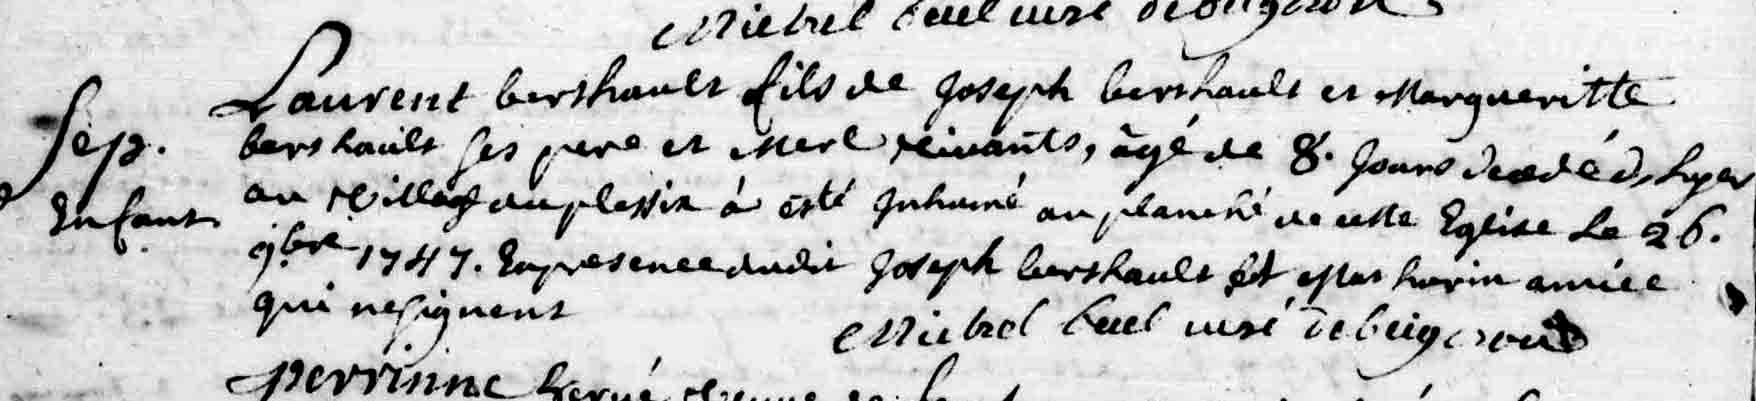 Michel Cuel curé de
Laurent bershault fils de Joseph bershault et Margueritte
Sep. bershault ses pere et Mere vivants, âgé de 8. Jours decedé d'hyer
Enfant au village du plessix à esté Inhumé au planché de cette Eglise Le 26.
9.bre 1747. En presence dudit Joseph bershault et Mathurin année
qui ne signent
Michel Cuel curé de
perrinne hervé veuve de